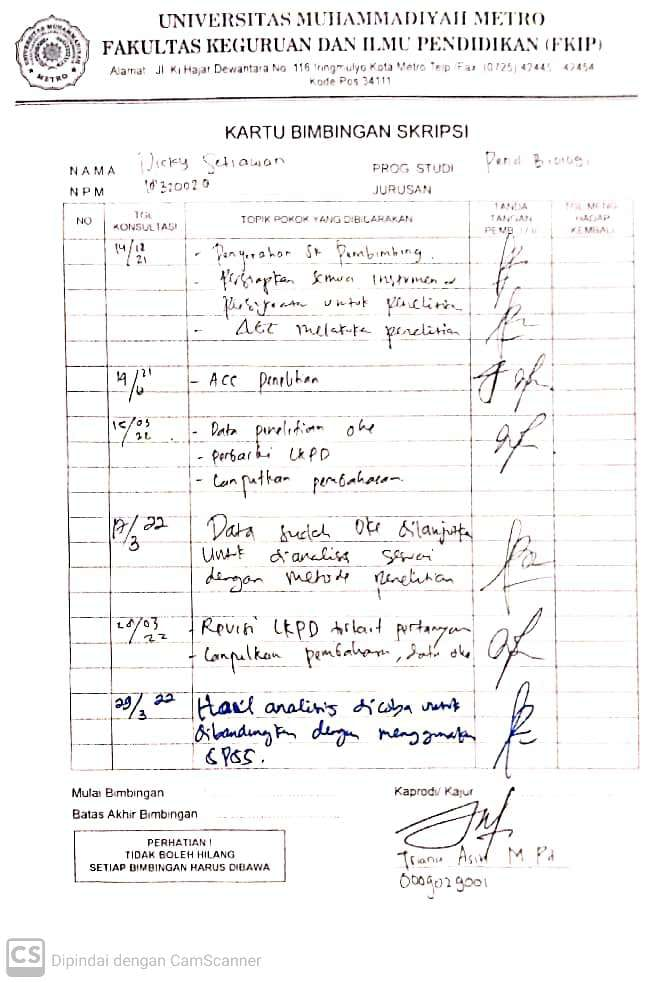 UNIVERSITAS MUHAMMADIYAH METRO
FAKULTAS KEGURUAN DAN ILMU PENDIDIKAN (FKIP)
Alamat Jl. Ki Hajar Dewantara No. 116 Iringmulyo Kota Metro Telp /Fax (0725) 42445 42454
Kode Pos 34111
KARTU BIMBINGAN SKRIPSI
NAMA Dicky Setiawan PROG STUDI Pend. Biologi
NPM JURUSAN
NO TGL KONSULTASI TOPIK POKOK YANG DIBICARAKAN TANDA TANGAN PEMB. I / II TGL MENGHADAP KEMBALI
14/12 21 - Penyerahan SK Pembimbing.
- Persiapkan semua instrumen
untuk penelitian
- ACC penelitian
- ACC Penelitian
15/03 22 - Data penelitian oke
- perbaiki LKPD
- Lanjutkan pembahasan.
17/3 22 Data sudah oke dilanjutkan
untuk dianalisis sesuai
dengan metode penelitian
- Revisi LKPD terkait pertanyaan
- Lanjutkan pembahasan, data oke
29/3 22 Hasil analisis dicoba untuk
dibandingkan dengan menggunakan
SPSS.
Mulai Bimbingan Kaprodi/ Kajur
Batas Akhir Bimbingan
PERHATIAN !
TIDAK BOLEH HILANG
SETIAP BIMBINGAN HARUS DIBAWA
M Pd
CS Dipindai dengan CamScanner